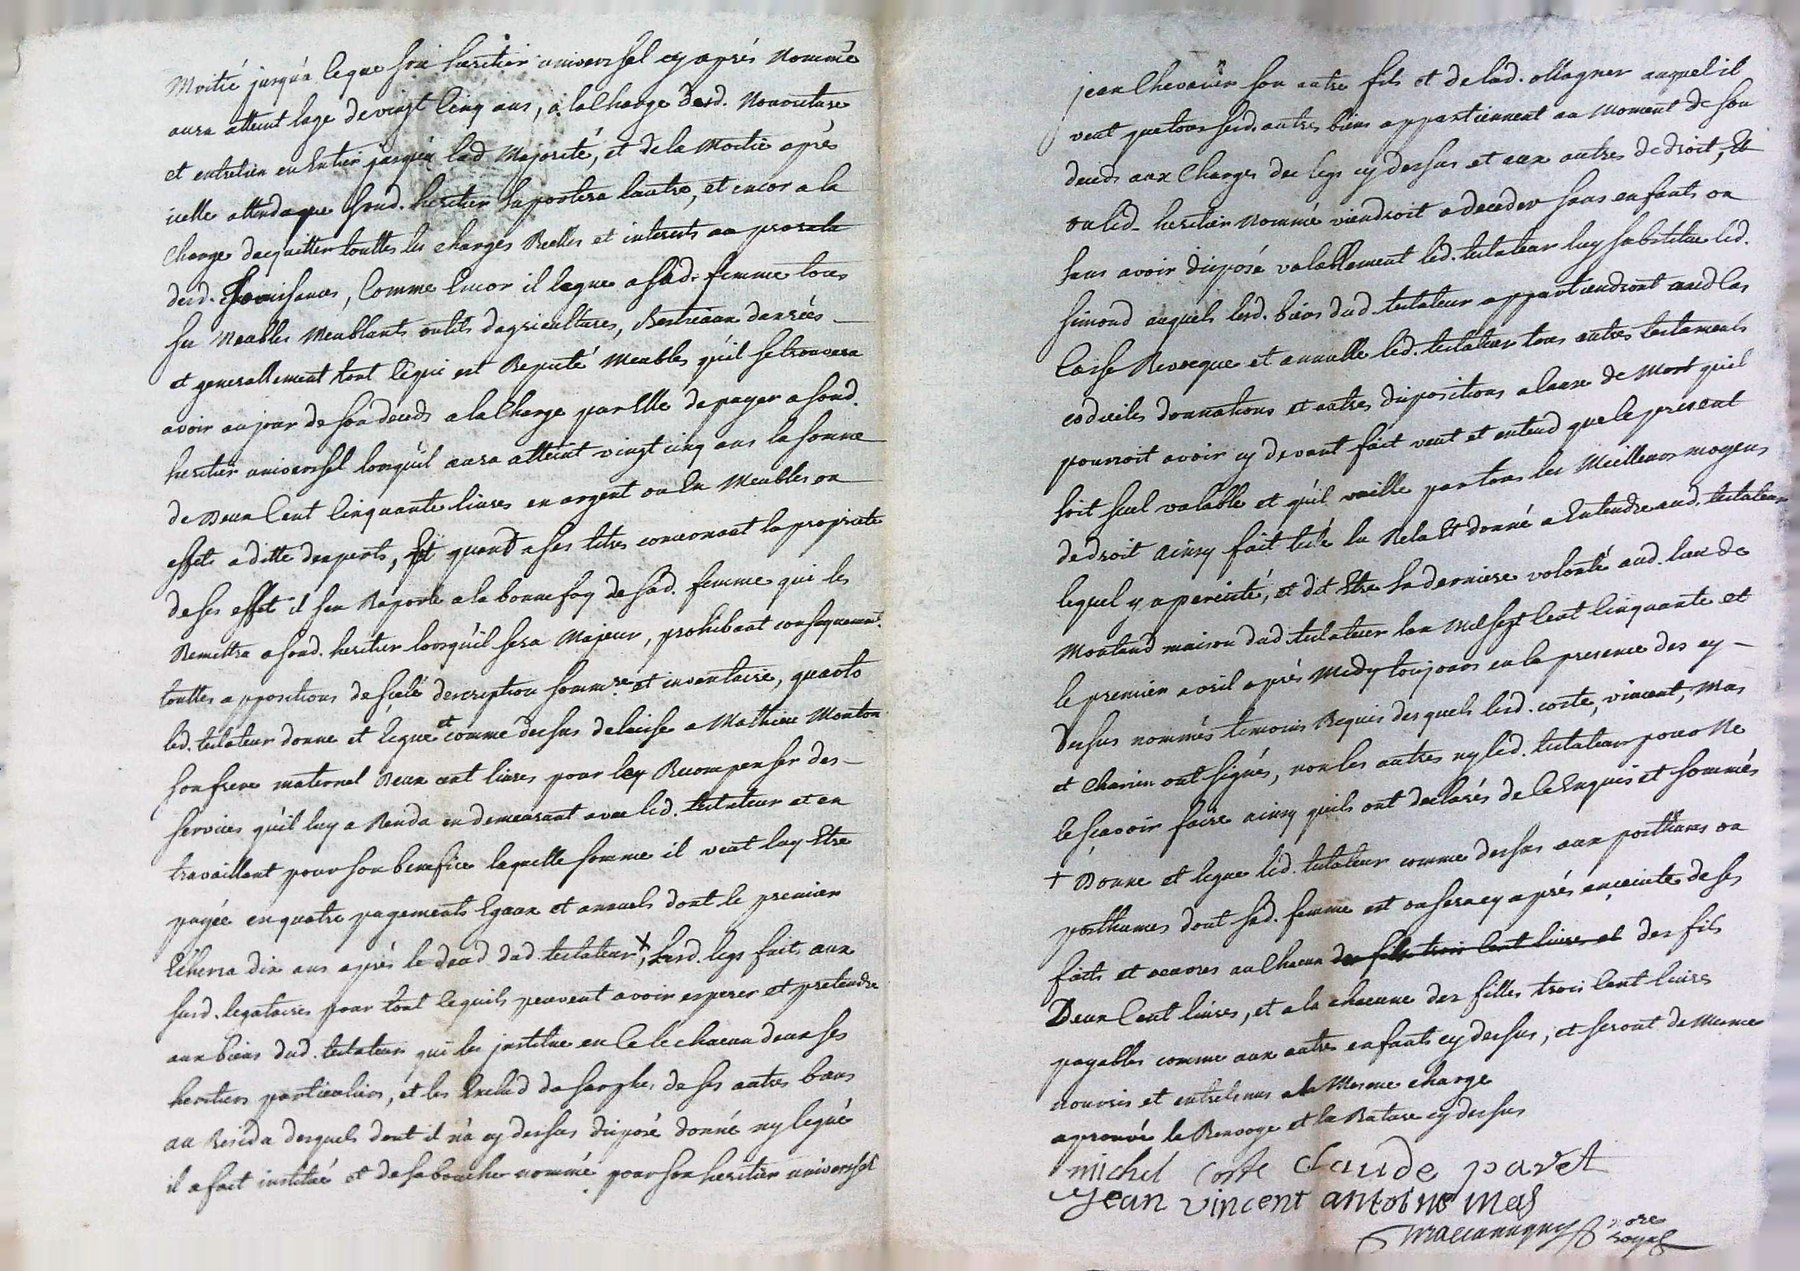 Moitié jusqu'a ceque son heritier universel cy aprés Nommé
aura atteint lage de vingt cinq ans, a la Charge desd. Nouriture
et entretien en Entier jusqu'a lad. Majorité, et de la Moitié aprés
icelle attendu que sond. heritier suportera lautre, et encor a la
charge dacquitter touttes les charges Reelles et interets au prorata
desd. Jouissances, Comme Encor il legue a sad. femme tous
ses Meubles Meublants outils dagricultures, Bestieaux danrées
et generallement tout cequi est Reputé Meubles qu'il se trouvera
avoir au jour de son deceds a la Charge par Elle de payer a sond.
heritier universel lorsqu'il aura atteint vingt cinq ans la somme
de Deux Cent Cinquante livres en argent ou En Meubles ou
effets a ditte dexperts, Et quand a ses titres concernant la propriete
de ses effet il sen Raporte a la bonne foy de sad. femme qui les
Remettra a sond. heritier lorsqu'il sera Majeur, prohibant consequement
touttes appositions de scelé description somm.re et inventaire, quarto
led. testateur donne et legue et comme dessus delaisse a Mathieu Monton
son frere maternel Deux cent livres pour ley Recompenser des
services qu'il luy a Rendu en demeurant avec led. testateur et en
travaillant pour son benefice laquelle somme il veut luy Etre
payée en quatre payements Egaux et annuels dont le premier
Echerra dix ans aprés le deced dud. testateur +, Lesd. legs faits aux
susd. legataires pour tout ce quils peuvent avoir esperer et pretendre
aux biens dud. testateur qui les institue en ce le chacun deux ses
heritiers particuliers, et les Exclud du surplus de ses autres biens
au Residu desquels dont il n'a cy dessus disposé donné ny legué
il a fait institué et de sa bouche nommé pour son heritier universel
jean Chevarin son autre fils et de lad. ollagner auquel il
veut que tous sesd. autres biens appartiennent au Moment de son
deceds aux Charges des legs cy dessus et aux autres de droit, Et
ou led. heritier Nommé viendroit a deceder sans enfants ou
sans avoir disposé valablement led. testateur luy substitue led.
simond auquels lesd. biens dud. testateur appartiendront aud Cas
Casse Revoque et annulle led. testateur tous autres testaments
codicils donnations et autres dispositions a Cause de Mort quil
pourroit avoir cy devant fait veut et entend que le present
soit seul valable et qu'il vaille par tous les Meilleurs moyens
de droit ainsy fait leu Relu Et donné a Entendre aud. testateur
lequel y a persisté, et dit Etre sa derniere volonté aud. lieu de
Montaud maison dud. testateur lan Mil sept Cent Cinquante et
le premier avril aprés Midy toujours en la presence des cy
dessus nommés temoins Requis desquels lesd. coste, vincent, Mas
et Charien ont signés, non les autres ny led. testateur pour Ne
le sçavoir faire ainsy quils ont declarés de ce Enquis et sommés
+ Donne et legue led. testateur comme dessus aux posthumes ou
posthumes dont sad. femme est ou sera cy aprés enceinte de ses
faits et œuvres au Chacun des fils trois Cent livres et des fils
Deux Cent livres, et a la chacune des filles trois Cent livres
payables comme aux autres enfants cy dessus, et seront de Mesme
nourris et entretenus a la Mesme charge
aprouvé le Renvoye et la Rature cy dessus
michel Coste Claude pavet
jean vincent antoine mas
nore royal